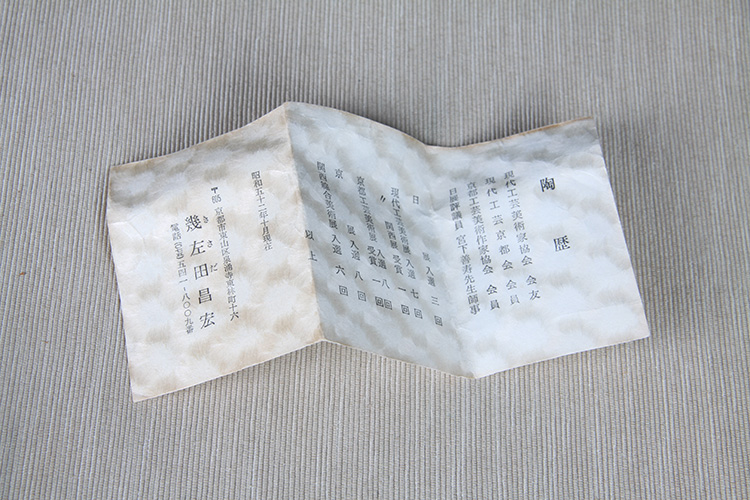 陶歴
現代工芸美術家協会 会友
現代工芸京都会 会員
京都工芸美術作家協会 会員
日展評議員 宮下善寿先生師事
日展入選 三回
現代工芸美術展入選 七回
〃 関西展 受賞 一回
京都工芸美術展 入選 八回
京展入選 八回
関西綜合美術展入選 六回
以上
昭和五十二年十月現在
京都市東山区泉涌寺東林町十六
きさだ
幾左田昌宏
五四一・八〇〇九番